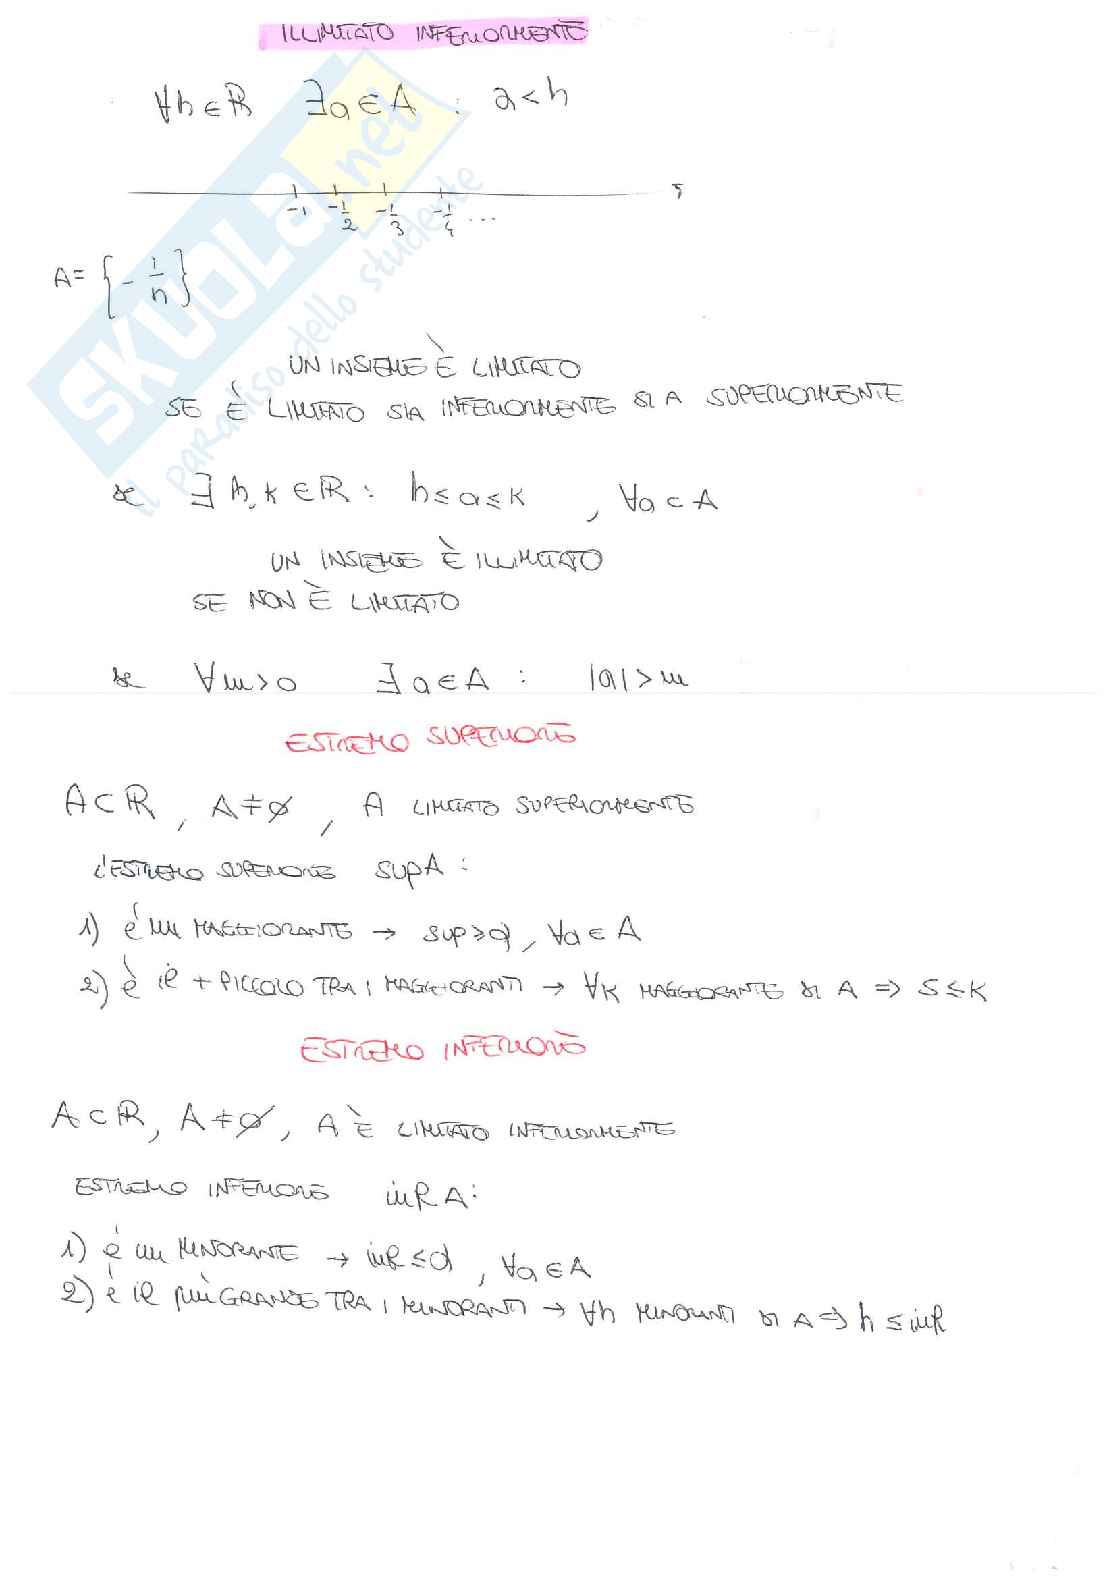 ILLIMITATO INFERIORMENTE
∀h ∈ ℝ ∃a ∈ A : a < h
-1 -1/2 -1/3 -1/4 ...
A = { - 1/n }
UN INSIEME È LIMITATO
SE È LIMITATO SIA INFERIORMENTE SIA SUPERIORMENTE
se ∃ h, k ∈ ℝ : h ≤ a ≤ k , ∀a ⊂ A
UN INSIEME È ILLIMITATO
SE NON È LIMITATO
se ∀m > 0 ∃ a ∈ A : |a| > m
ESTREMO SUPERIORE
A ⊂ ℝ , A ≠ ∅ , A LIMITATO SUPERIORMENTE
L'ESTREMO SUPERIORE SUP A :
1) é un MAGGIORANTE → SUP ≥ a , ∀a ∈ A
2) è il + PICCOLO TRA I MAGGIORANTI → ∀K MAGGIORANTE di A ⇒ S ≤ K
ESTREMO INFERIORE
A ⊂ ℝ , A ≠ ∅ , A È LIMITATO INFERIORMENTE
ESTREMO INFERIORE inf A :
1) é un MINORANTE → inf ≤ a , ∀a ∈ A
2) è il più GRANDE TRA I MINORANTI → ∀h MINORANTI di A ⇒ h ≤ inf
SKUOLA.net
il paradiso dello studente